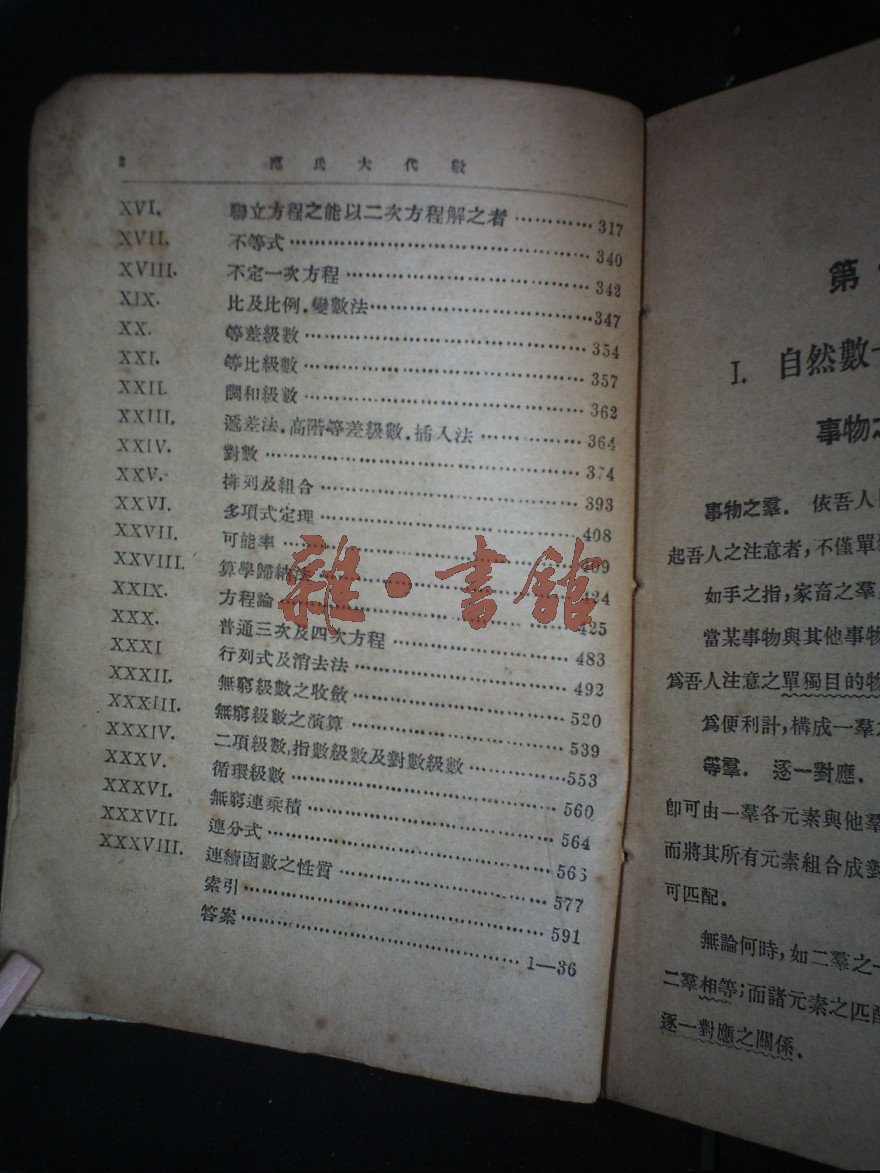 2 范氏大代數
XVI. 聯立方程之能以二次方程解之者 ………… 317
XVII. 不等式 ………… 340
XVIII. 不定一次方程 ………… 342
XIX. 比及比例.變數法 ………… 347
XX. 等差級數 ………… 354
XXI. 等比級數 ………… 357
XXII. 調和級數 ………… 362
XXIII. 遞差法.高階等差級數.插入法 ………… 364
XXIV. 對數 ………… 374
XXV. 排列及組合 ………… 393
XXVI. 多項式定理 ………… 408
XXVII. 可能率 ………… 409
XXVIII. 算學歸納法 ………… 424
XXIX. 方程論 ………… 425
XXX. 普通三次及四次方程 ………… 483
XXXI 行列式及消去法 ………… 492
XXXII. 無窮級數之收斂 ………… 520
XXXIII. 無窮級數之演算 ………… 539
XXXIV. 二項級數,指數級數及對數級數 ………… 553
XXXV. 循環級數 ………… 560
XXXVI. 無窮連乘積 ………… 564
XXXVII. 連分式 ………… 566
XXXVIII. 連續函數之性質 ………… 577
索引 ………… 591
答案 ………… 1—36
雜·書館
第
I. 自然數
事物之
事物之羣. 依吾人
起吾人之注意者,不僅單
如手之指,家畜之羣
當某事物與其他事物
爲吾人注意之單獨目的物
爲便利計,構成一羣之
等羣. 逐一對應.
卽可由一羣各元素與他羣
而將其所有元素組合成對
可匹配.
無論何時,如二羣之一
二羣相等;而諸元素之匹配
逐一對應之關係.